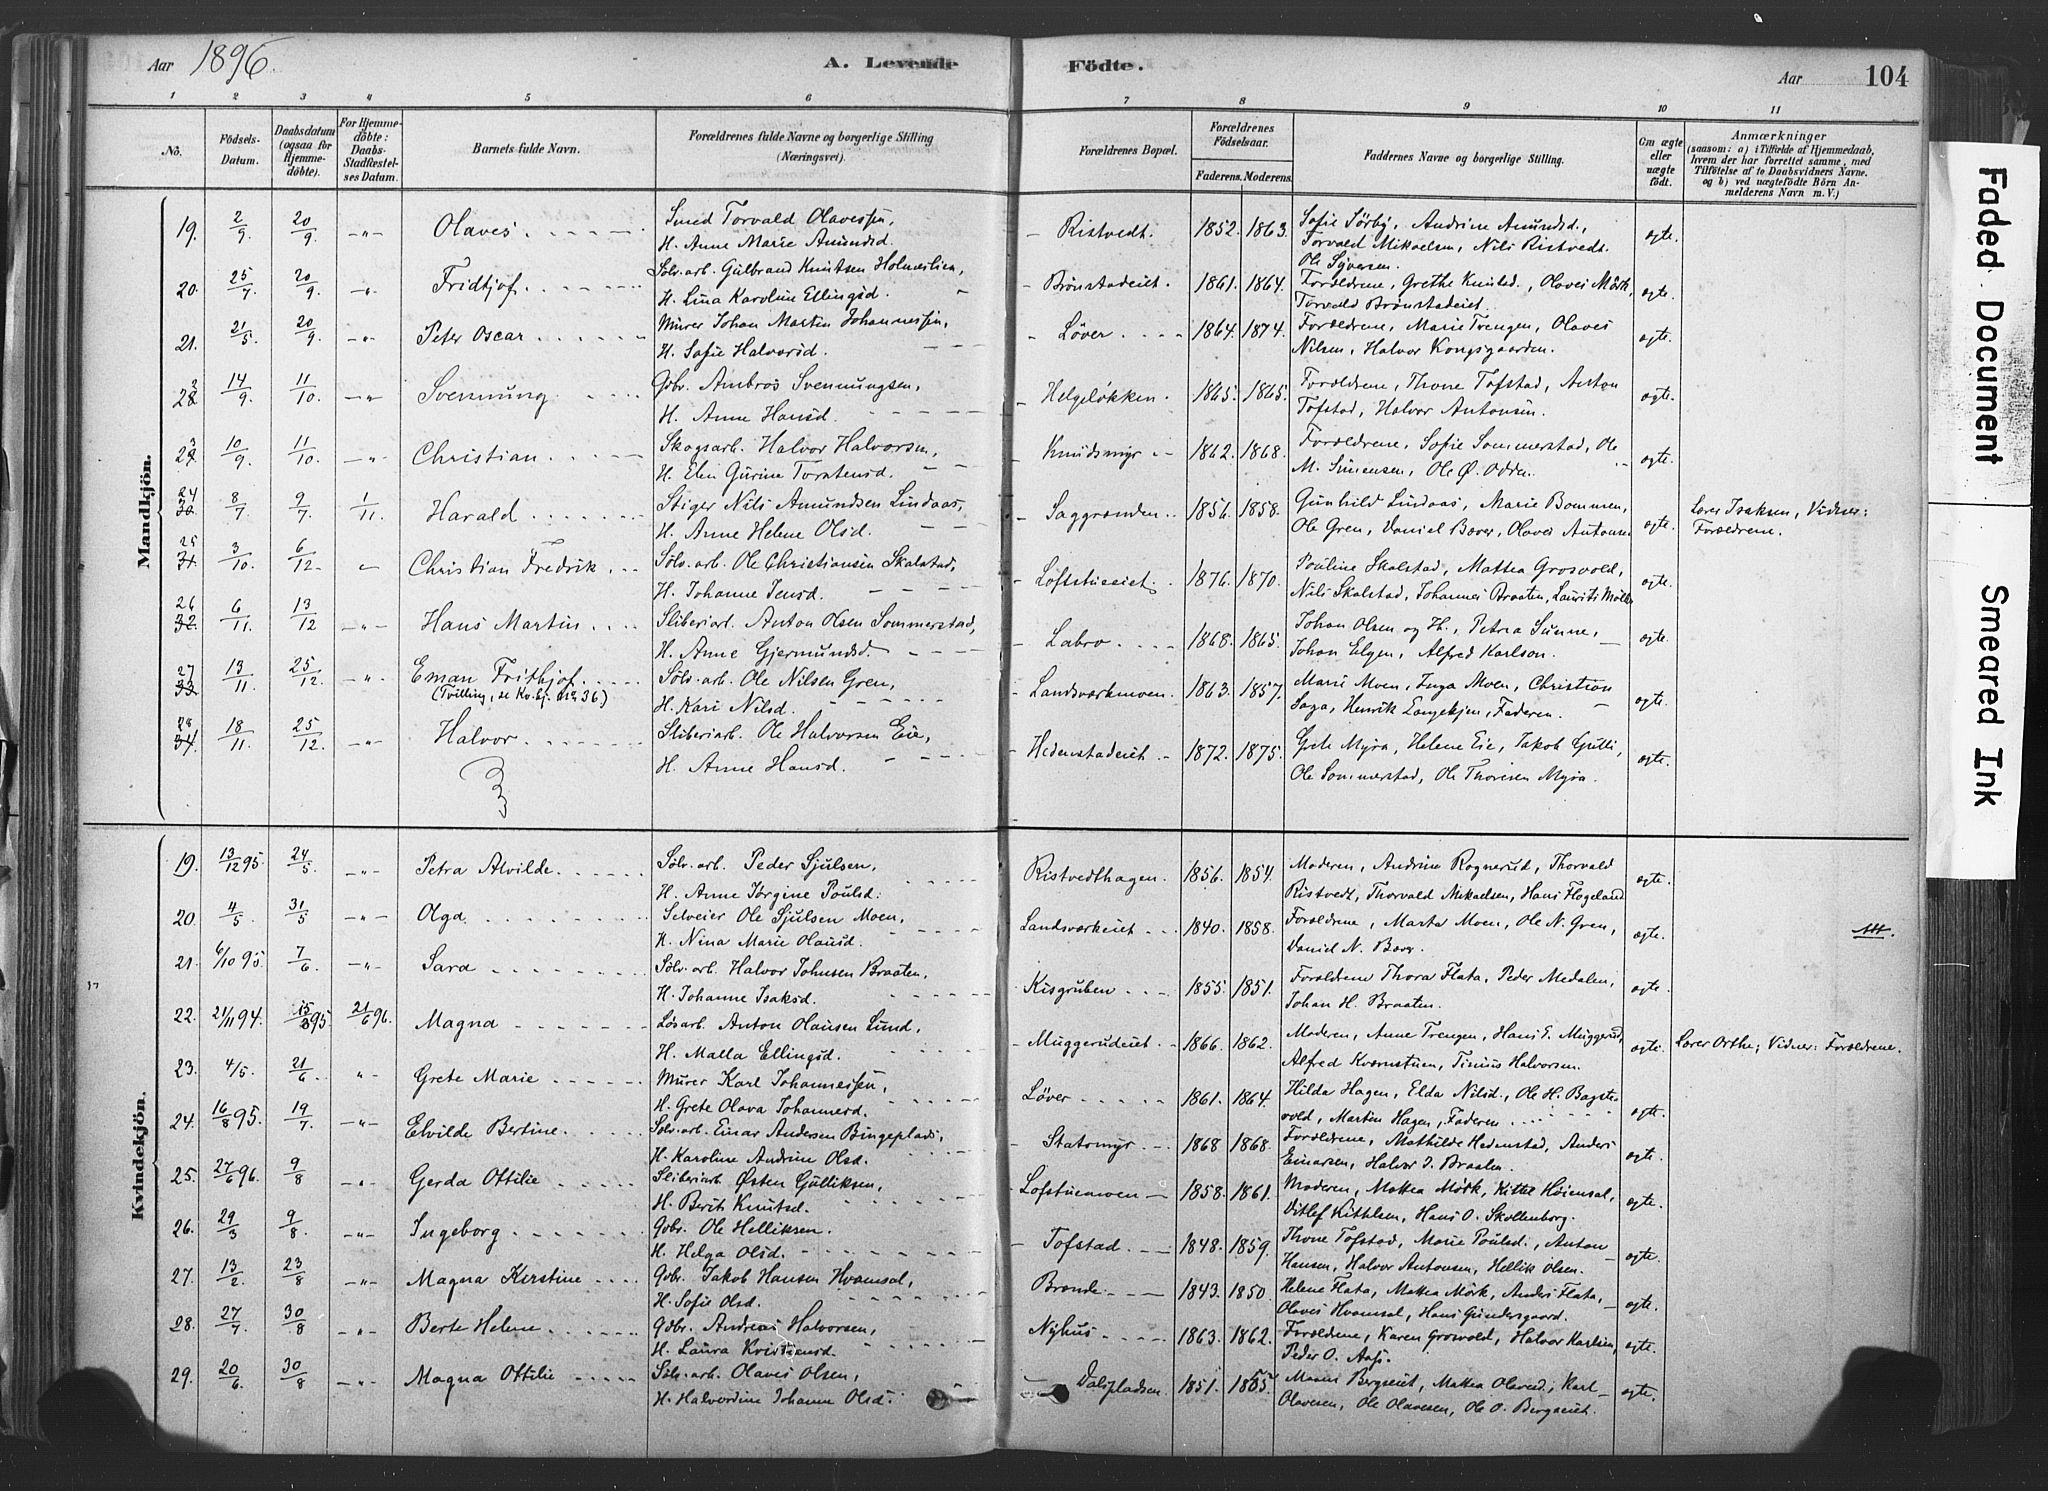 Aar 1896. A. Levende Födte. Aar 104
1 2 3 4 5 6 7 8 9 10 11
No. Födsels-Datum. Daabsdatum (ogsaa for Hjemmedöbte). For Hjemmedöbte: Daabs-Stadfæstelses Datum. Barnets fulde Navn. Forældrenes fulde Navne og borgerlige Stilling (Næringsvei). Forældrenes Bopæl. Forældrenes Födselsaar. Faderens. Moderens. Faddernes Navne og borgerlige Stilling. Om ægte eller uægte födt. Anmærkninger (saasom: a) i Tilfælde af Hjemmedaab, hvem der har forrettet samme, med Tilföielse af to Daabsvidners Navne, og b) ved uægtefödte Börn Anmelderens Navn m. V.)
Mandkjön.
19. 2/9 20/9 -"- Olaves Smed Torvald Olavessen, Ristvedt. 1852. 1863. Sofie Sörby, Andrine Amundsd., ægte.
H. Anne Marie Amundsd. Torvald Mikaelsen, Nils Ristvedt.
Ole Syversen.
20. 25/7 20/9 -"- Fridtjof Sölv.arb. Gulbrand Knutsen Holmerlien, Brønstadeiet. 1861. 1864. Forældrene, Grethe Knutsd., Olaves Mörk, ægte.
H. Lina Karoline Ellingsd. Torvald Brønstadeiet.
21. 21/5 20/9 -"- Peter Oscar Murer Johan Martin Johannessen, Løver 1864. 1874. Forældrene, Marie Trengen, Olaves ægte.
H. Sofie Halvorsd. Nilsen, Halvor Kongsgaarden.
22 14/9 11/10 -"- Svennung Gbr. Ambros Svennungsen, Helgeløkken. 1865. 1865. Forældrene, Thone Tofstad, Anton ægte.
H. Anne Hansd. Tofstad, Halvor Antonsen.
23 10/9 11/10 -"- Christian Skogsarb. Halvor Halvorsen, Knudsmyr 1862. 1868. Forældrene, Sofie Sommerstad, Ole ægte.
H. Elen Gurine Torstensd. M. Simensen, Ole Ø. Odden.
24 30 8/7 9/7 1/11. Harald Stiger Nils Amundsen Lindaas, Saggrenden. 1856. 1858. Gunhild Lindaas, Marie Bommen, ægte. Lærer Isaksen, Vidner:
H. Anne Helene Olsd. Ole Gren, Daniel Bæver, Olaves Antonsen Forældrene.
25 31 3/10. 6/12 Christian Fredrik Sölv.arb. Ole Christiansen Skalstad, Løfstueeiet. 1876. 1870. Pauline Skalstad, Mathea Grosvold, ægte.
H. Johanne Jensd. Nils Skalstad, Johannes Braaten, Laurits Möller
26 32. 6/11. 13/12 -"- Hans Martin Sliberiarb. Anton Olsen Sommerstad, Labro 1868. 1865. Johan Olsen og H., Petrea Sunne, ægte.
H. Anne Gjermundsd. Johan Elgen, Alfred Karlson.
27 33 13/11. 25/12. -"- Eman Frithjof. Sölv.arb. Ole Nilsen Gren, Landsværkmoen. 1863. 1857. Marie Moen, Inga Moen, Christian ægte.
(Tvilling, se Kv.kj. No 36) H. Kari Nilsd. Saga, Henrik Langekjen, Faderen.
28 34. 18/11. 25/12. -"- Halvor Sliberiarb. Ole Halvorsen Eie, Hedenstadeiet 1872. 1875. Grete Myra, Helene Eie, Jakob Gulli, ægte.
H. Anne Hansd. Ole Sommerstad, Ole Thoresen Myra.
Kvindekjön.
19. 13/12 95 24/5 -"- Petra Alvilde Sölv.arb. Peder Sjulsen, Ristvedthagen. 1856. 1854. Moderen, Andrine Rognerud, Thorvald ægte.
H. Anne Jørgine Poulsd. Ristvedt, Thorvald Mikaelsen, Hans Flogeland
20. 4/5. 31/5 -"- Olga Selveier Ole Sjulsen Moen, Landsværkeiet 1840. 1858. Forældrene, Marta Moen, Ole N. Gren, ægte.
H. Nina Marie Olausd. Daniel N. Bæver.
21. 6/10 95. 7/6. -"- Sara Sölv.arb. Halvor Johnsen Braaten, Kisgruben 1855. 1851. Forældrene Thora Flata, Peder Medalen, ægte.
H. Johanne Isaksd. Johan H. Braaten.
22. 21/11 94. 15/3 95 21/6 96. Magna Løsarb. Anton Hansen Lund, Muggerudeiet 1866. 1862. Moderen, Anne Trengen, Hans E. Muggerud, ægte. Lærer Orthe; Vidner: Forældrene.
H. Malla Ellingsd. Alfred Kværnstuen, Tinius Halvorsen.
23. 4/5. 21/6. " Grete Marie Murer Karl Johannessen, Løver 1861. 1864. Hilda Hagen, Elda Nilsd., Ole H. Bagste- ægte.
H. Grete Olava Johannesd. vold, Martin Hagen, Faderen
24. 16/8 95. 19/7. -"- Elvilde Bertine. Sölv.arb. Einar Andersen Bingeplads, Statsmyr 1868 1868. Forældrene, Mathilde Hedenstad, Anders ægte.
H. Karoline Andrine Olsd. Einarsen, Halvor J. Braaten.
25. 27/6 96. 9/8 " Gerda Ottilie Sliberiarb Østen Gulliksen, Løfstuemoen 1858. 1861. Moderen, Mathea Mörk, Kittel Höiensal, ægte.
H. Berit Knutsd. Ditlef Kittilsen, Hans O. Skollenborg.
26. 29/3 9/8. -"- Ingeborg Gbr. Ole Helliksen. Tofstad 1848. 1859. Thone Tofstad, Marie Poulsd., Anton ægte.
H. Helga Olsd. Hansen, Halvor Antonsen, Hellik Olsen.
27. 13/2. 23/8 -"- Magna Kirstine Gbr. Jakob Hansen Hvamsal, Brænde 1843. 1850. Helene Flata, Mathea Mörk, Anders Flata, ægte.
H. Sofie Olsd. Olaves Hvamsal, Hans Gundersgaard.
28. 27/7. 30/8 -"- Berte Helene Gbr. Andreas Halvorsen, Nyhus 1863. 1862. Forældrene, Karen Grosvold, Halvor Karlsen, ægte.
H. Laura Kristiansd. Peder O. Aas.
29. 20/6. 30/8 -"- Magna Ottilie Sölv.arb. Olaves Olsen, Dalspladsen. 1851. 1865. Maren Bergseiet, Mathea Olavesd., Karl ægte.
H. Halvordine Johanne Olsd. Olavesen, Ole Olavesen, Ole O. Bergseiet.
Faded Document
Smeared Ink